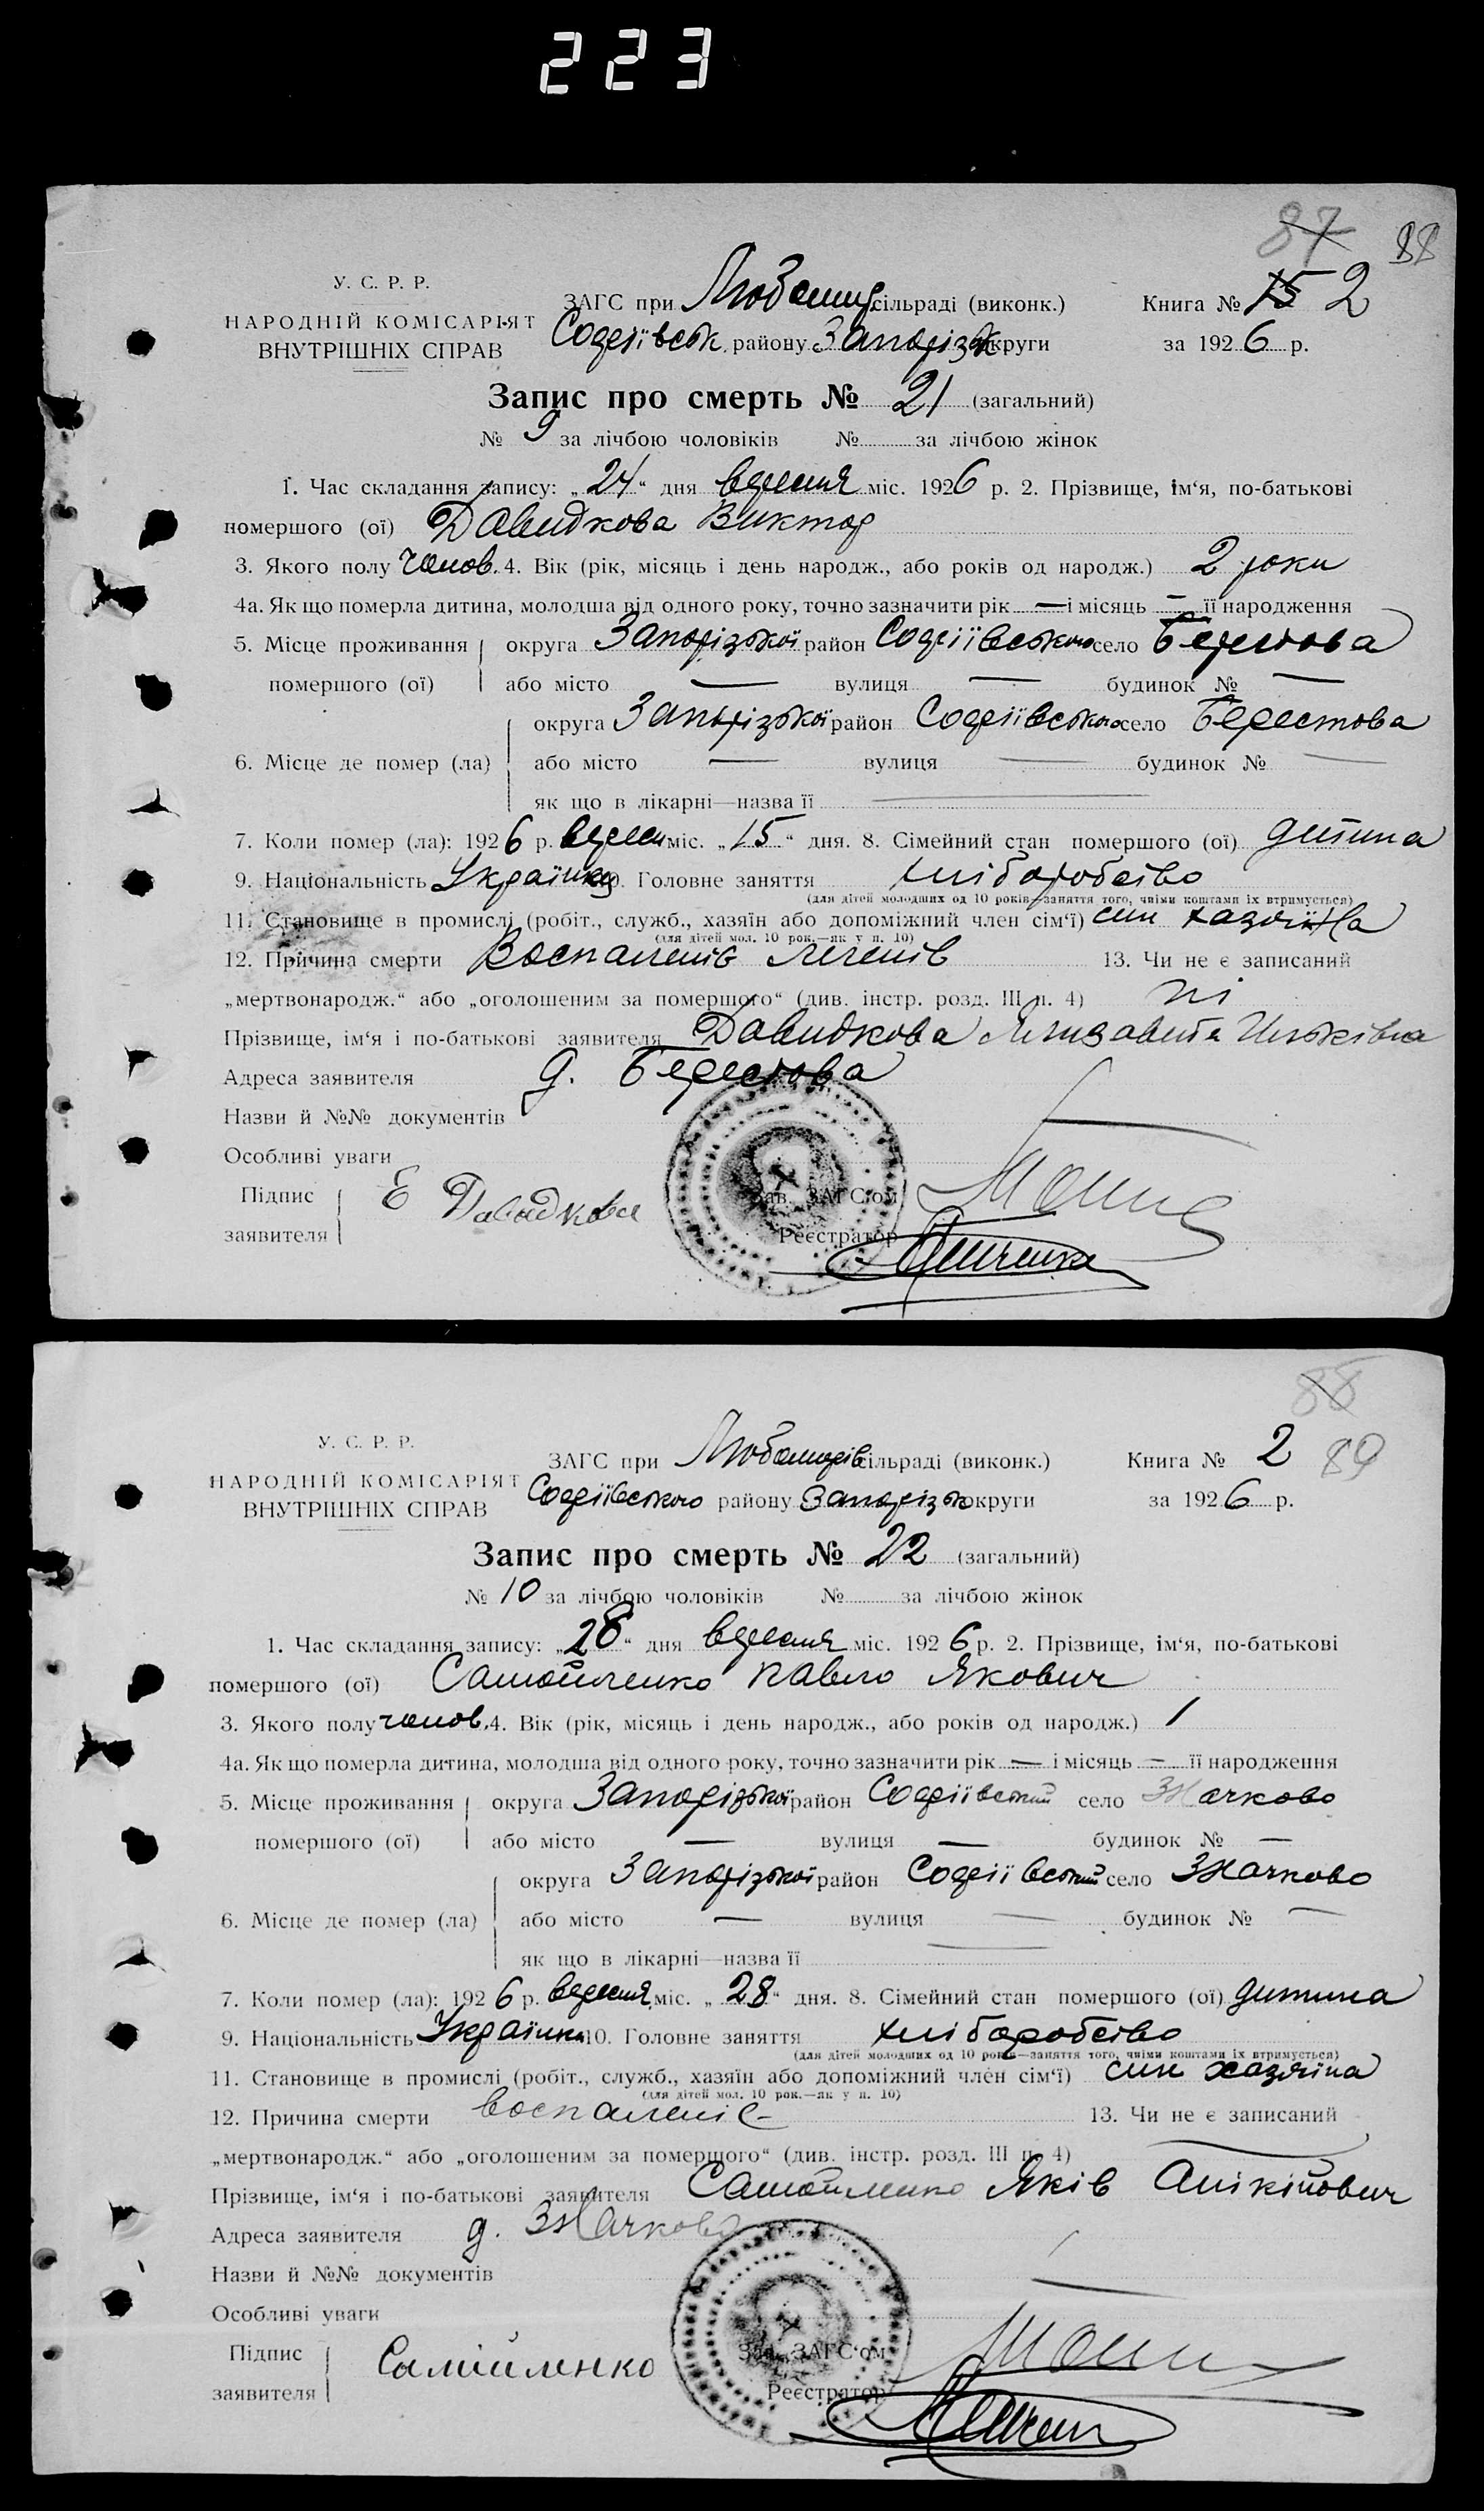 223
87 88
У. С. Р. Р.
НАРОДНІЙ КОМІСАРІЯТ
ВНУТРІШНІХ СПРАВ
ЗАГС при Любомир сільраді (виконк.)
Софіївськ. району Запорізьк округи
Книга № 15 2
за 1926 р.
Запис про смерть № 21 (загальний)
№ 9 за лічбою чоловіків № за лічбою жінок
1. Час складання запису: „24“ дня вересня міс. 1926 р. 2. Прізвище, ім‘я, по-батькові
помершого (ої) Давидкова Виктор
3. Якого полу чолов. 4. Вік (рік, місяць і день народж., або років од народж.) 2 роки
4а. Як що померла дитина, молодша від одного року, точно зазначити рік — і місяць — її народження
5. Місце проживання округа Запорізької район Софіївського село Берестова
помершого (ої) або місто — вулиця — будинок № —
округа Запорізької район Софіївського село Берестова
6. Місце де помер (ла) або місто — вулиця — будинок № —
як що в лікарні—назва її —
7. Коли помер (ла): 1926 р. вересн міс. „15“ дня. 8. Сімейний стан помершого (ої) дитина
9. Національність Українец 10. Головне заняття хліборобство
(для дітей молодших од 10 років—заняття того, чиїми коштами їх втримується)
11. Становище в промислі (робіт., служб., хазяїн або допоміжний член сім‘ї) син хазяїна
(для дітей мол. 10 рок.—як у п. 10)
12. Причина смерти Воспаленіє легенів 13. Чи не є записаний
„мертвонародж.“ або „оголошеним за помершого“ (див. інстр. розд. III п. 4) ні
Прізвище, ім‘я і по-батькові заявителя Давидкова Лизавета Ильківна
Адреса заявителя д. Берестова
Назви й №№ документів
Особливі уваги
Підпис Е Давидкова Зав. ЗАГС‘ом
заявителя Реєстратор
88
У. С. Р. Р.
НАРОДНІЙ КОМІСАРІЯТ
ВНУТРІШНІХ СПРАВ
ЗАГС при Любомирів сільраді (виконк.)
Софіївського району Запорізьк округи
Книга № 2 89
за 1926 р.
Запис про смерть № 22 (загальний)
№ 10 за лічбою чоловіків № за лічбою жінок
1. Час складання запису: „28“ дня вересня міс. 1926 р. 2. Прізвище, ім‘я, по-батькові
помершого (ої) Самойленко Павло Якович
3. Якого полу чолов. 4. Вік (рік, місяць і день народж., або років од народж.) 1
4а. Як що померла дитина, молодша від одного року, точно зазначити рік — і місяць — її народження
5. Місце проживання округа Запорізької район Софіївський село Значково
помершого (ої) або місто — вулиця — будинок № —
округа Запорізької район Софіївський село Значково
6. Місце де помер (ла) або місто — вулиця — будинок № —
як що в лікарні—назва її —
7. Коли помер (ла): 1926 р. вересня міс. „28“ дня. 8. Сімейний стан помершого (ої) дитина
9. Національність Українец 10. Головне заняття хліборобство
(для дітей молодших од 10 років—заняття того, чиїми коштами їх втримується)
11. Становище в промислі (робіт., служб., хазяїн або допоміжний член сім‘ї) син хазяїна
(для дітей мол. 10 рок.—як у п. 10)
12. Причина смерти воспаленіє 13. Чи не є записаний
„мертвонародж.“ або „оголошеним за помершого“ (див. інстр. розд. III п. 4)
Прізвище, ім‘я і по-батькові заявителя Самойленко Яків Анікійович
Адреса заявителя д. Значкова
Назви й №№ документів
Особливі уваги
Підпис Самійленко Зав. ЗАГС‘ом
заявителя Реєстратор